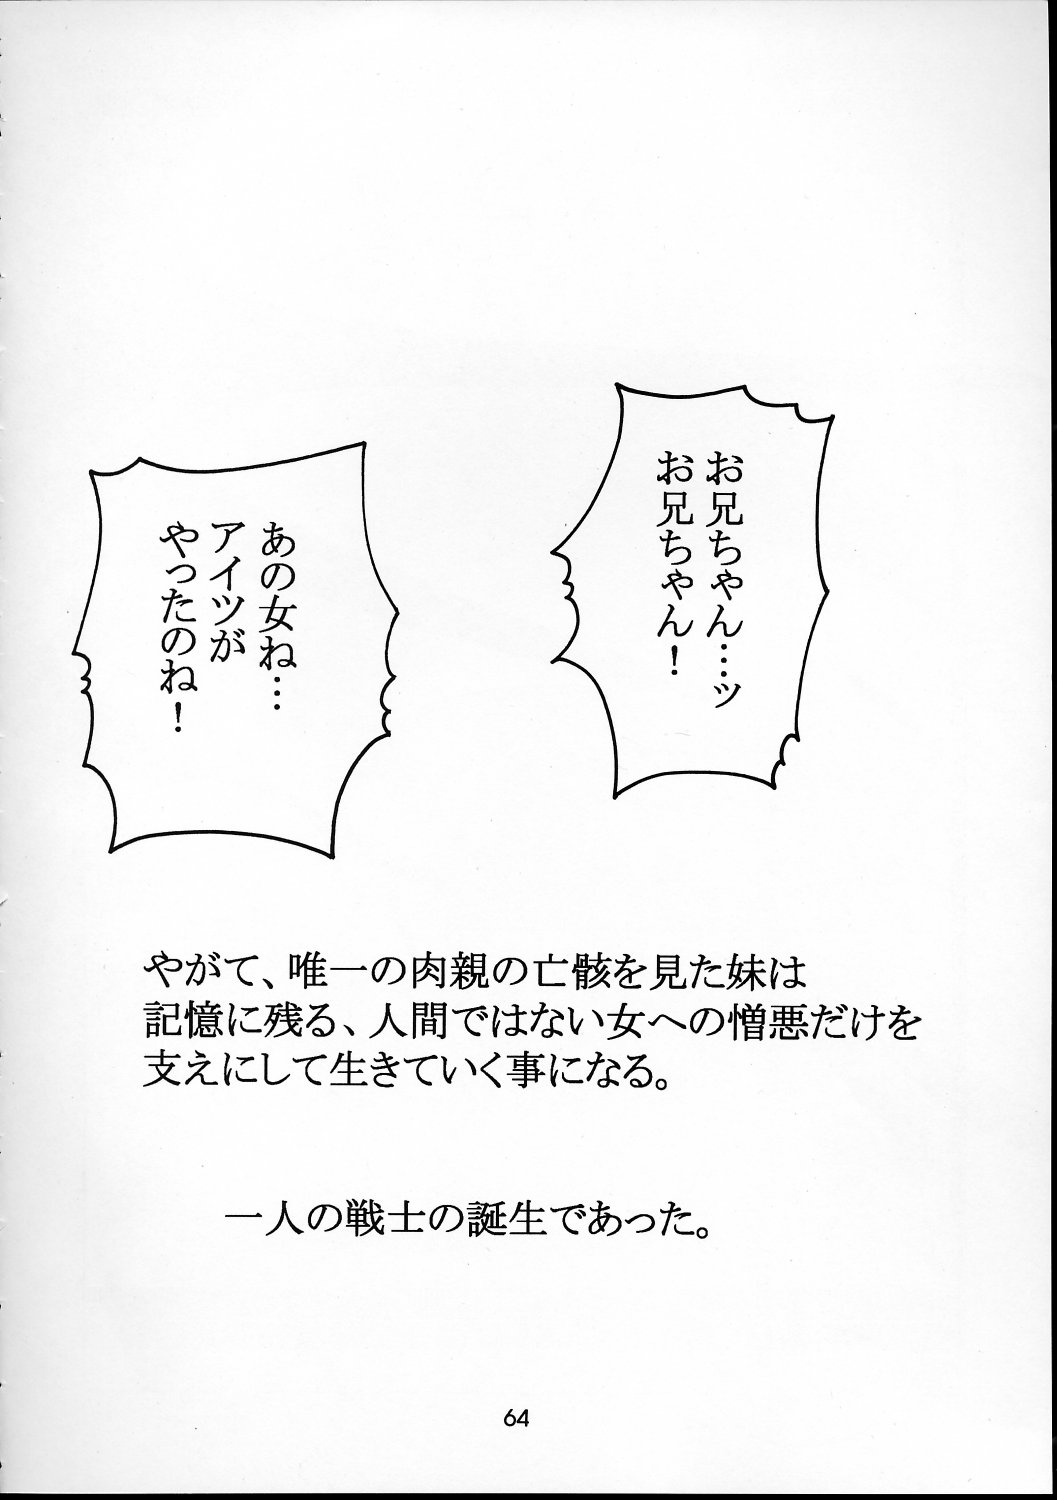 お兄ちゃん…ッ
お兄ちゃん！
あの女ね…
アイツが
やったのね！
やがて、唯一の肉親の亡骸を見た妹は
記憶に残る、人間ではない女への憎悪だけを
支えにして生きていく事になる。
一人の戦士の誕生であった。
64